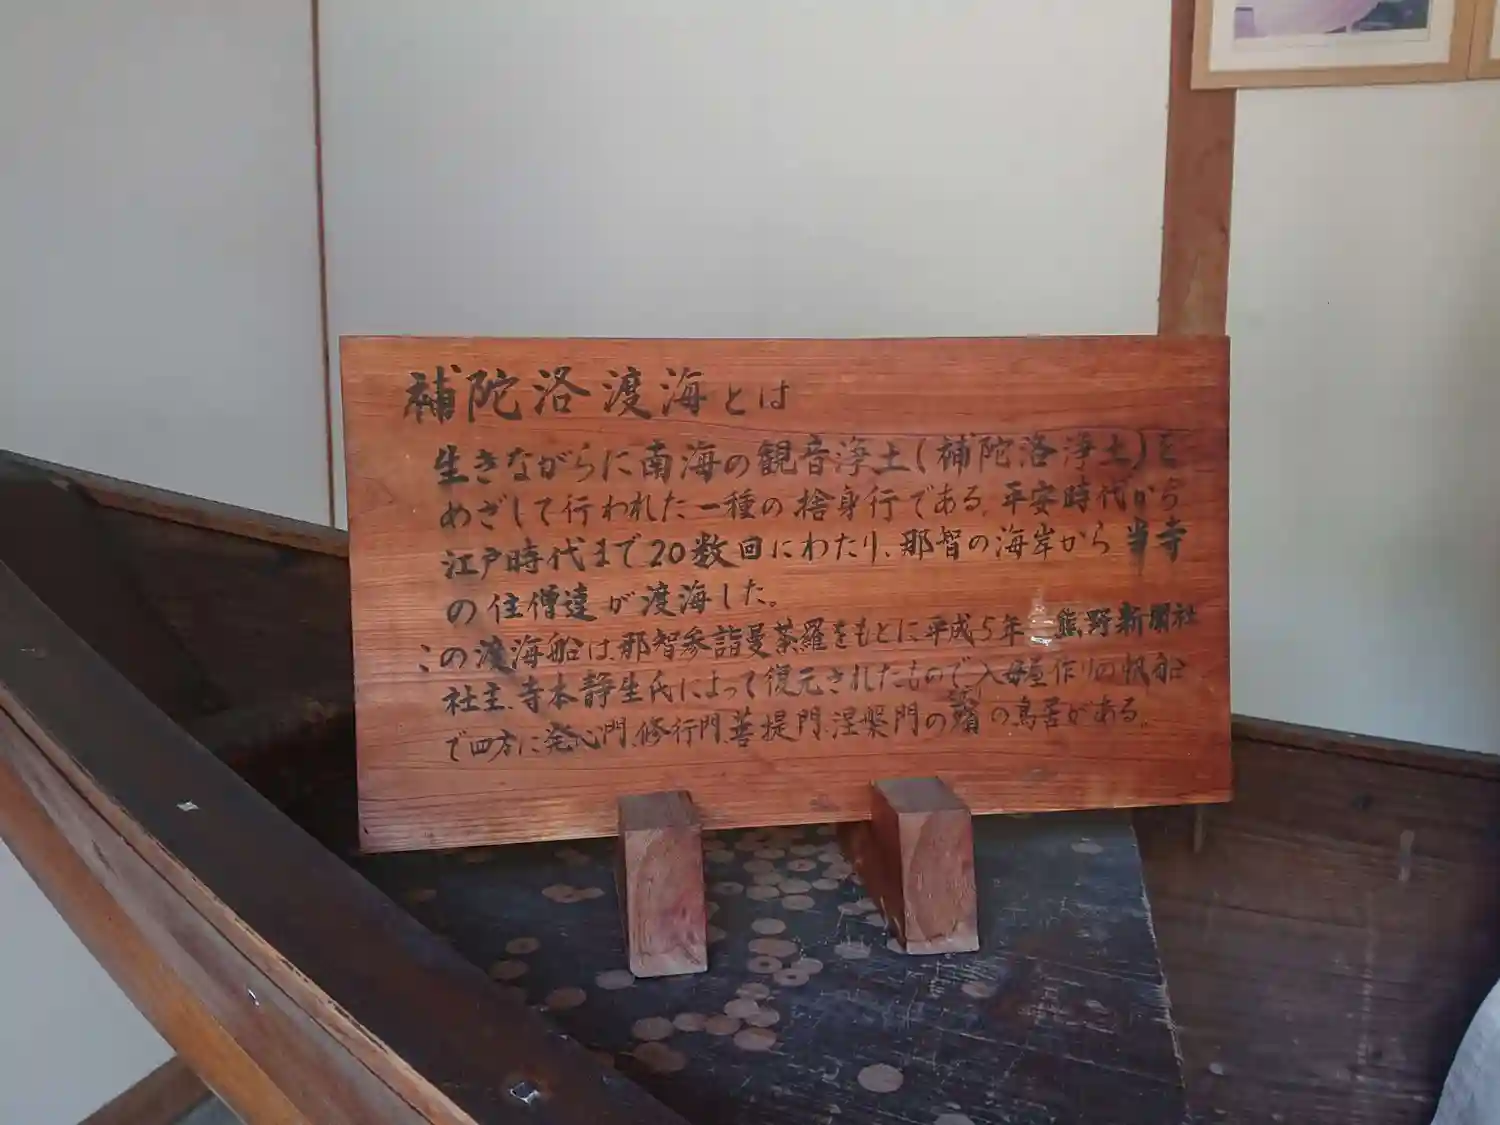 補陀洛渡海とは
生きながらに南海の観音浄土(補陀洛浄土)を
めざして行われた一種の捨身行である。平安時代から
江戸時代まで20数回にわたり、那智の海岸から当寺
の住僧達が渡海した。
この渡海船は、那智参詣曼荼羅をもとに平成5年 熊野新聞社
社主、寺本静生氏によって復元されたもので、入母屋作りの帆船
で四方に発心門、修行門、菩提門、涅槃門の の鳥居がある。